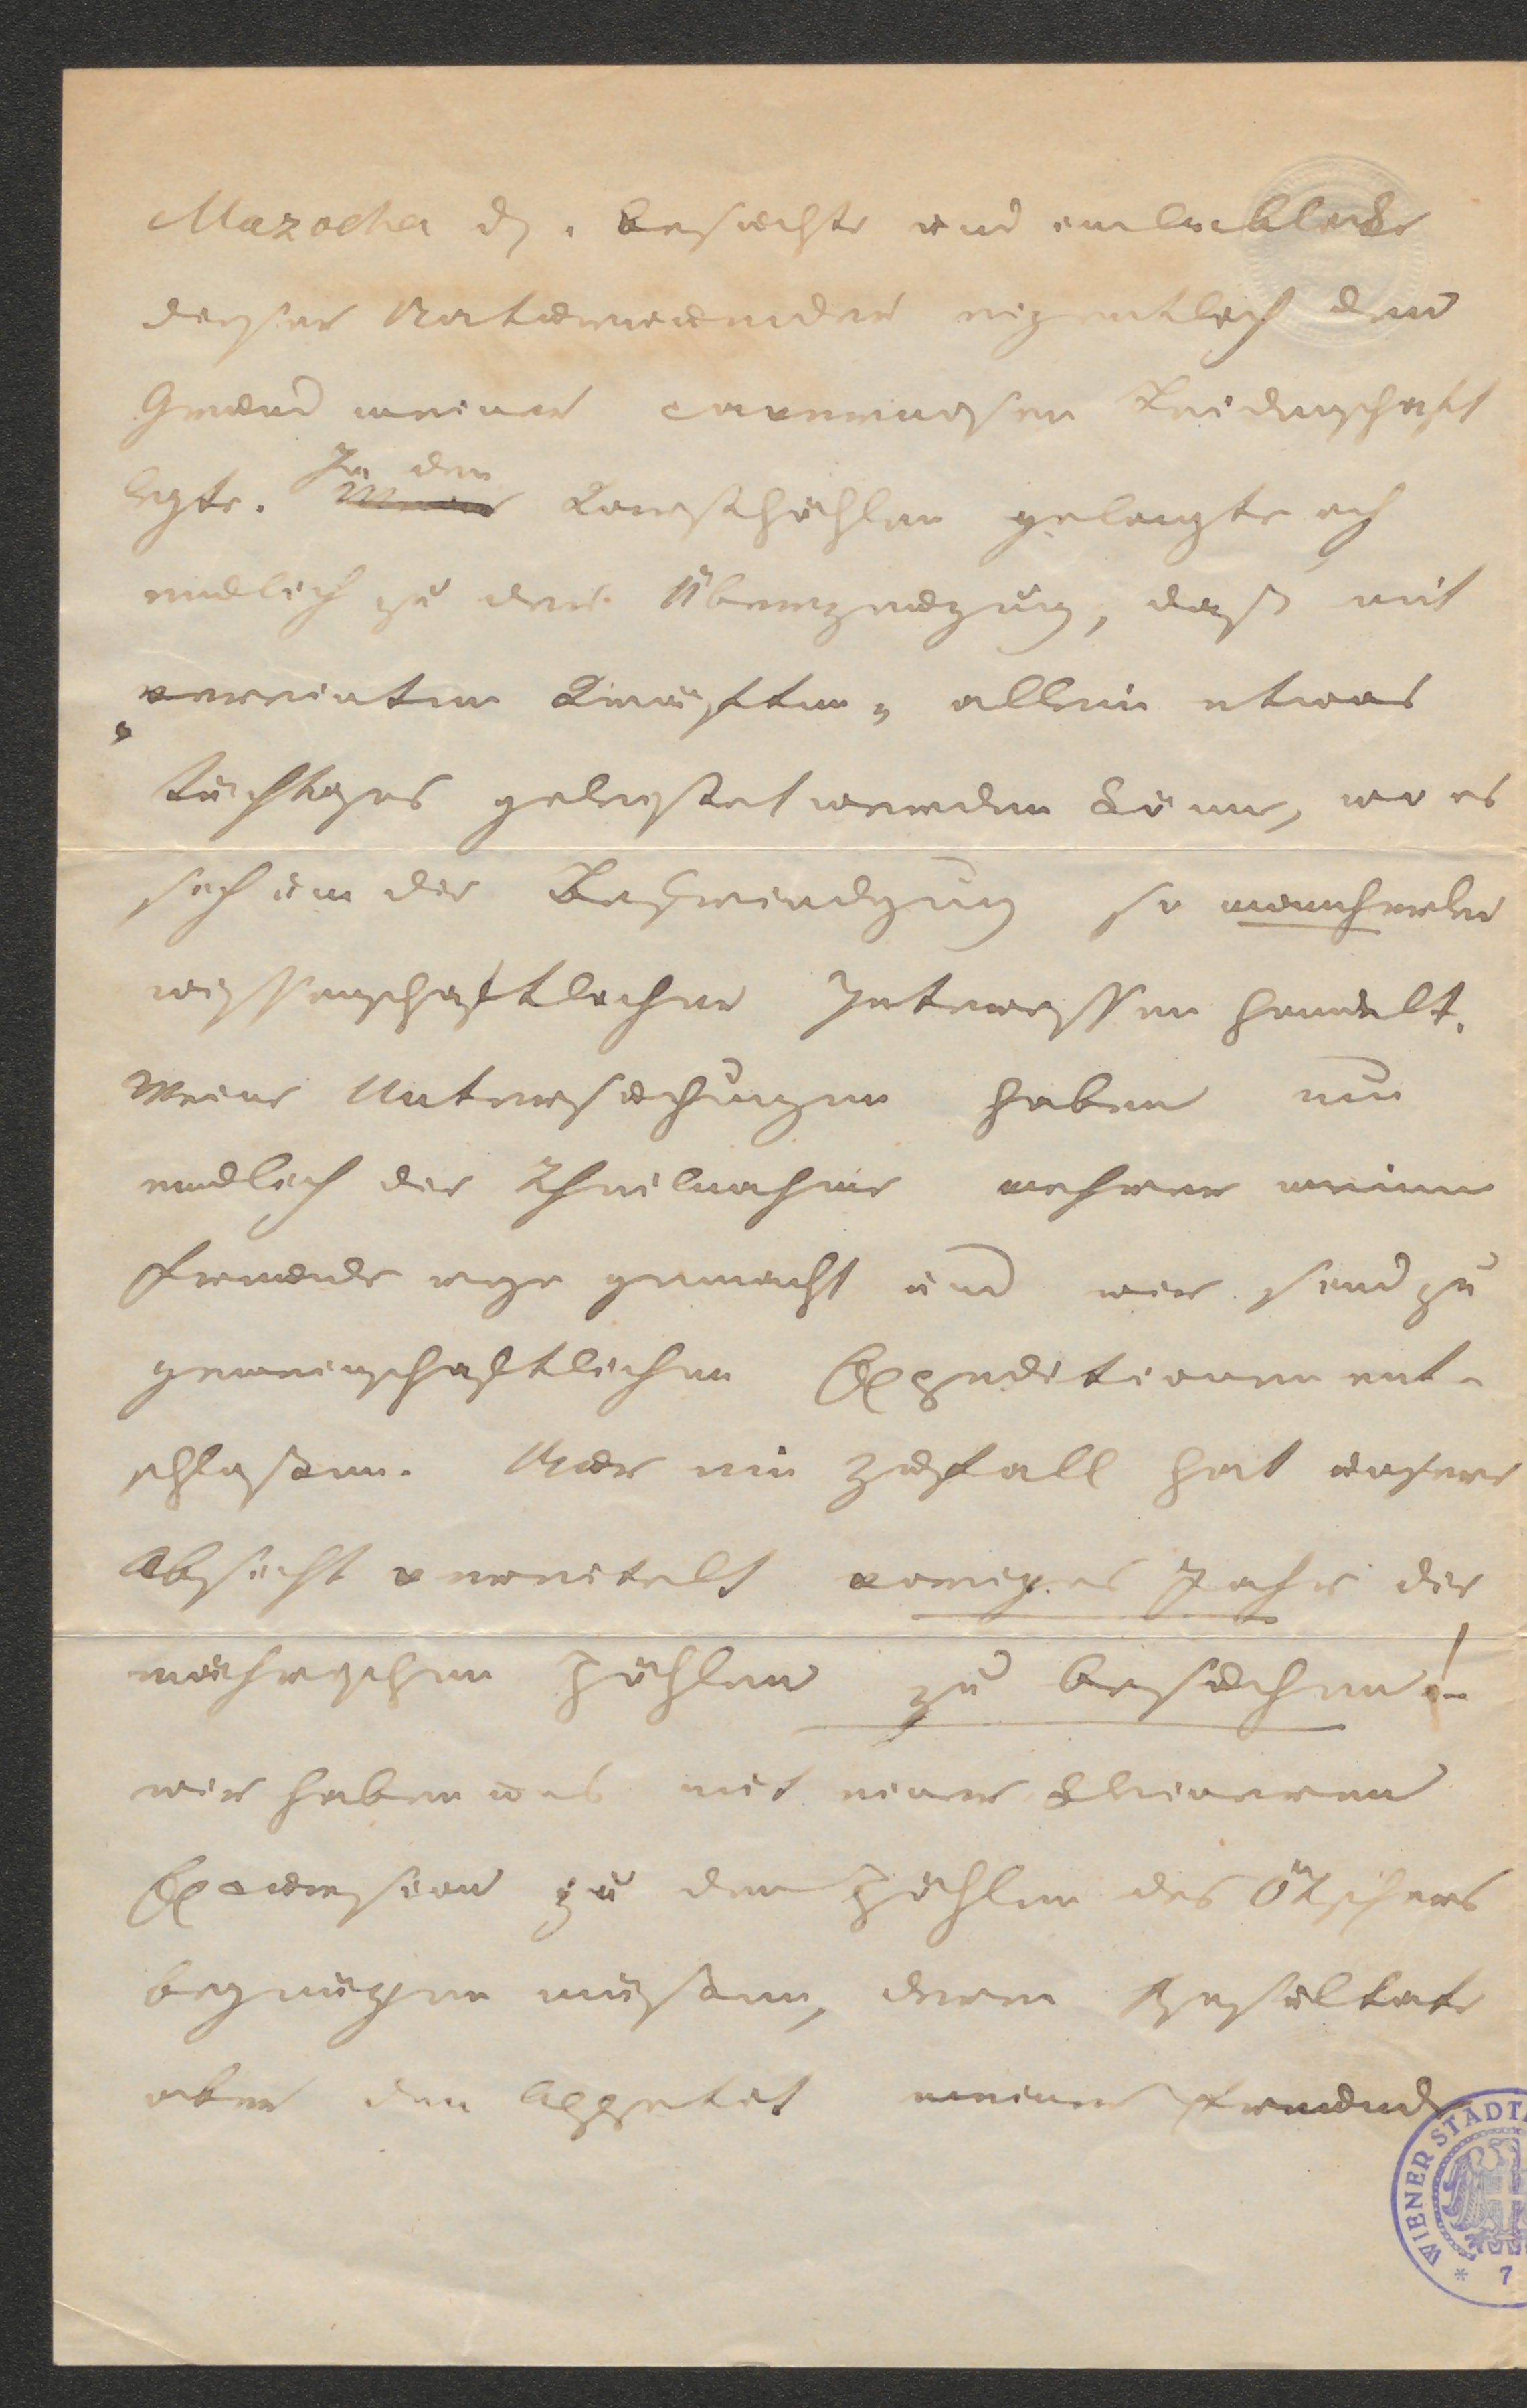 Mazocha ds. besuchte und im Anblicke
dieser Naturwunder eigentlich den
Grund meiner cavernosen Leidenschaft
legte. In den Karsthöhlen gelangte ich
endlich zu der Überzeugung, daß mit
„vereinten Kräften„ allein etwas
tüchtiges geleistet werden könne, wo es
sich um die Befriedigung so mancherlei
wissenschaftlicher Interessen handelt.
Meine Untersuchungen haben nun
endlich die Theilnahme mehrer meiner
Freunde rege gemacht und wir sind zu
gemeinschaftlichen Expeditionen ent-
schloßen. Nur ein Zufall hat unsere
Absicht vereitelt voriges Jahr die
mährischen Höhlen zu besuchen!-
wir haben uns mit einer kleineren
Excursion zu den Höhlen des Ötschers
begnügen müßen, deren Resultate
aber den Appetit meiner Freunde
WIENER STADT
* 7